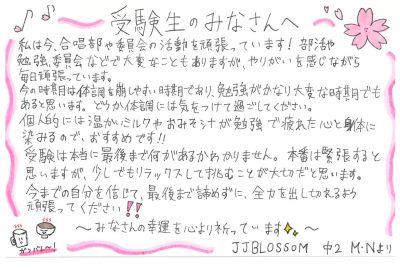 受験生のみなさんへ
私は今、合唱部や委員会の活動を頑張っています！部活や
勉強、委員会などで大変なこともありますが、やりがいを感じながら
毎日頑張っています。
今の時期は体調を崩しやすい時期であり、勉強がかなり大変な時期でも
あると思います。どうか体調には気をつけて過ごしてください。
個人的には温かいミルクやおみそ汁が勉強で疲れた心と身体に
染みるので、おすすめです!!
受験は本当に最後まで何があるかわかりません。本番は緊張すると
思いますが、少しでもリラックスして挑むことが大切だと思います。
今までの自分を信じて、最後まで諦めずに、全力を出し切れるよう
頑張ってください!!
～みなさんの幸運を心より祈っています～
ガンバレ～!
JJBLOSSOM 中2 M・Nより